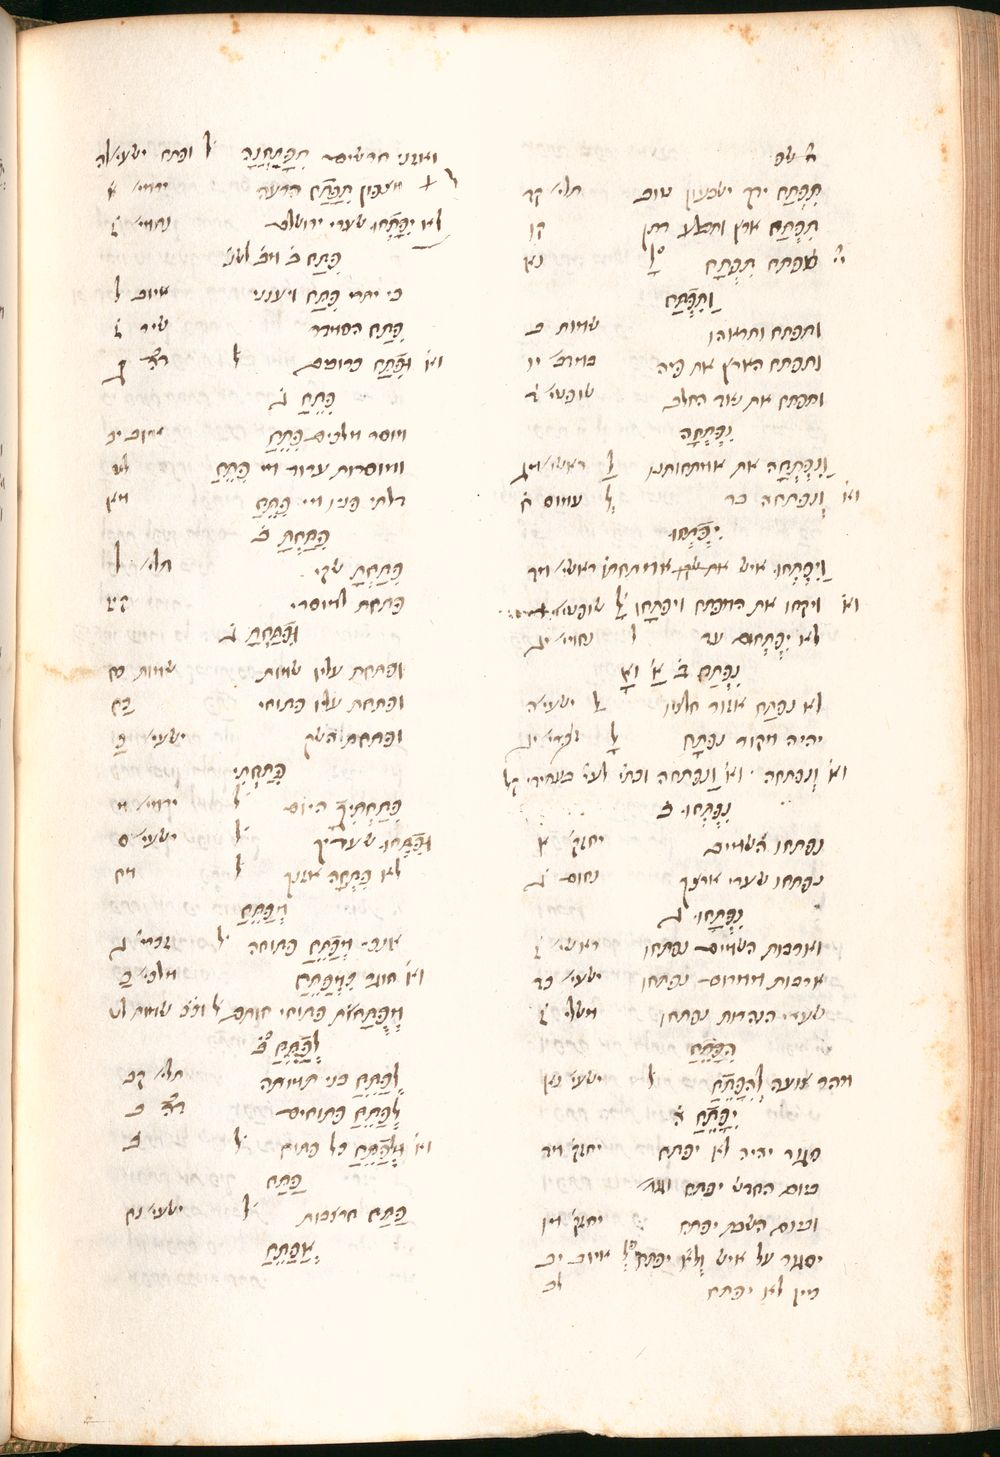 תִפְתַּח ידך ישבעון טוב תלי׳ קד
תִפְתַּח ארץ ותבלע דתן קו
שפתח תִפְתָּח נא
וַתִפְתַּח
ותפתח ותראהו שמות ב
ותפתח הארץ את פיה במדב׳ יו
ותפתח את נאד החלב שופטי׳ ד
נִפְתְּחָה
וַנִפְתְּחָה את אמתחותנו בראשי׳ מג
וא׳ וְנפתחה בר ל׳ עמוס ח
יִפְתְּחוּ
וַיִפְתְּחוּ איש אמתחתו בראשי׳ מד
וא׳ ויקחו את המפתח ויפתָּחו ל׳ שופטי׳
לא יִפְתָּחום עד ל׳ נחמי׳ יג
נִפְתַּח ב׳ א׳ וא׳
לא נפתַּח אזור חלציו ישעי׳ה
יהיה מקור נפתָּח זכרי׳ יג
וא׳ וְנפתחה וא׳ וַנפתחה
נִפְתְּחוּ ב
נפתחו השמים יחזק׳ א
נפתחו שערי ארצך נחום ג
נִפְתָּחוּ ג
וארבות השמים נפתחו בראשי׳ ז
ארבות ממרום נפתחו ישעי׳ כד
שערי הנהרות נפתחו נחום ב
הִפָּתֵחַ
מהר צועה לְהִפָּתֵחַ ל׳ ישעי׳ נא
יִפָּתֵחַ ה
סגור יהיה לא יפתח יחזק׳ מד
ביום החדש יפתח
וביום השבת יפתח יחזק׳ מו
יסגור על איש ולא יפתח איוב יב
מיין לא יפתח לב
ואזני חרשים תִפָּתַחְנָה ל׳ ופתח ישעי׳ לה
מצפון תִפָּתַח הרעה ירמי׳ א
לא יִפָּתְחוּ שערי ירושלם נחמי׳ ז
פִתַּח ב׳
כי יתרי פִתַּח ויענני איוב ל
פִתַּח הסמדר שיר ז
וא׳ וּפִתַּח כרובים ל׳
פִתֵּחַ ג
מוסר מלכים פִתֵּחַ איוב יב
ומוסרות ערוד מי פִתֵּחַ לט
דלתי פניו מי פִתֵּחַ מא
פִתַּחְתָּ ב
פִתַּחְתָּ שקי תלי׳ ל
פתחת למוסרי קיו
וּפִתַּחְתָּ ג
ופתחת עליו שמות כח
ופתחת עליו פתוחי
ופתחת השק ישעי׳ כ
פִתַּחְתִּי
פִתַּחְתִּיךָ היום ל׳ ירמי׳ מ
וּפִתְּחוּ שעריך ל׳ ישעי׳ ס
לא פִתְּחָה אזנך ל׳ מח
מְפַתֵּחַ
אנכי מְפַתֵּחַ פתוחה ל׳ זכרי׳ ג
וא׳ חוגר כִּמְפַתֵּחַ מלכי׳ כ
מְפֻתָּחֹת פתוחי חותם ל׳ שמות לט
לְפַתֵּחַ ב׳
לְפַתֵּחַ בני תמותה תלי׳ קב
לְפַתֵּחַ פתוחים
וא׳ וּלְפַתֵּחַ כל פתוח ל׳ ב
פַּתֵּחַ
פַּתֵּחַ חרצבות ל׳ ישעי׳ נח
אֲפַתֵּחַ